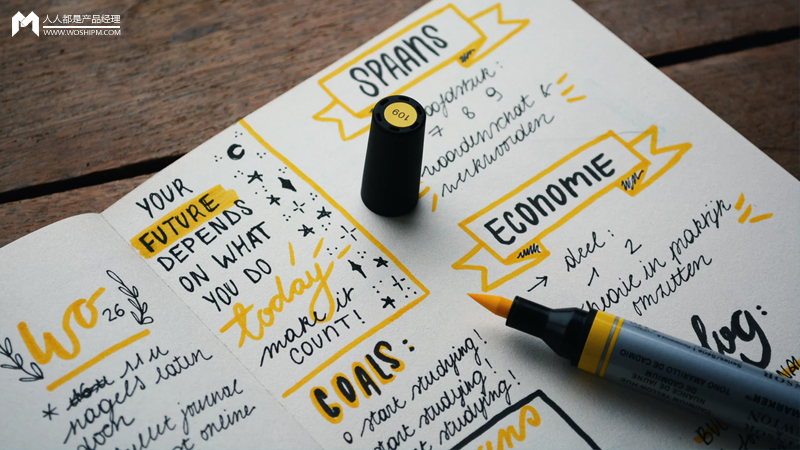 人人都是产品经理
WWW.WOSHIPM.COM
Wo
26
11 u
nagels laten
doch
bullet journal
online
YOUR
FUTURE
DEPENDS
ON WHAT
YOU DO
today
make it
COUNT!
GOALS:
start studying!
start studying!
start studying!
SPAANS
hoofdstuk:
7 8 9
woordenschat &
werkwoorden
109
ECONOMIE
→ deel:
1 2
theorie in praktijk
omzetten
TONO AMARILLO DE CADMIO